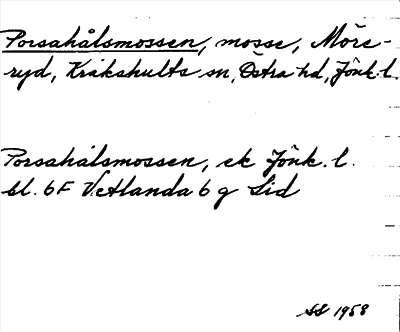 Porsahålsmossen, mosse, Möre-
ryd, Kråkshults sn, Östra hd, Jönk.l.
Porsahålsmossen, ek Jönk.l.
bl. 6F Vetlanda 6 g Lid
SS 1958